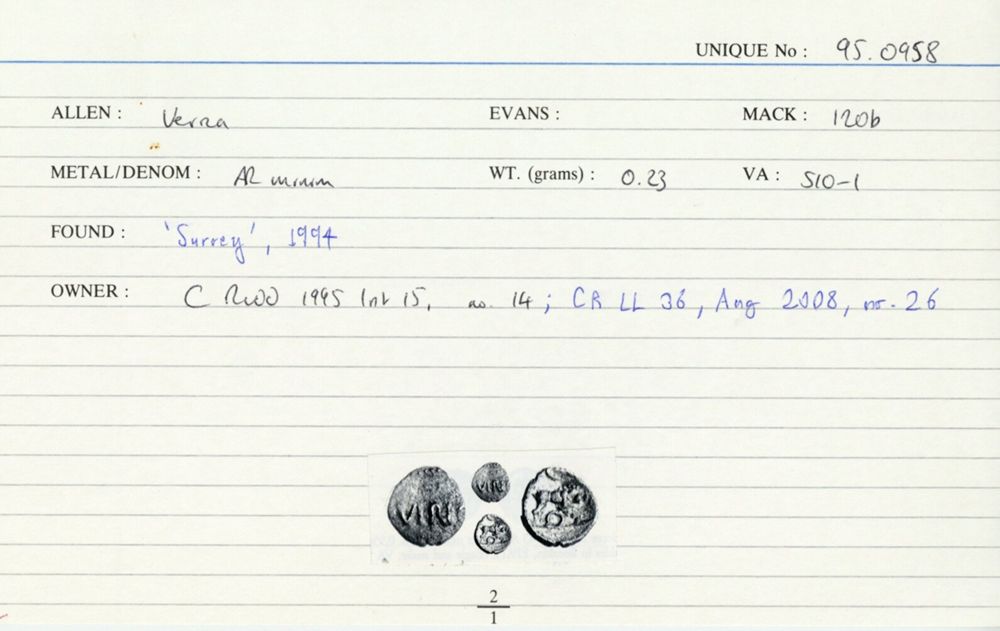 UNIQUE No : 95.0958
ALLEN : Verica EVANS : MACK : 120b
METAL/DENOM : AR minim WT. (grams) : 0.23 VA : 510-1
FOUND : 'Surrey', 1994
OWNER : C Rudd 1995 list 15, no. 14 ; CR LL 36, Aug 2008, no. 26
VIN
VIN
2
1